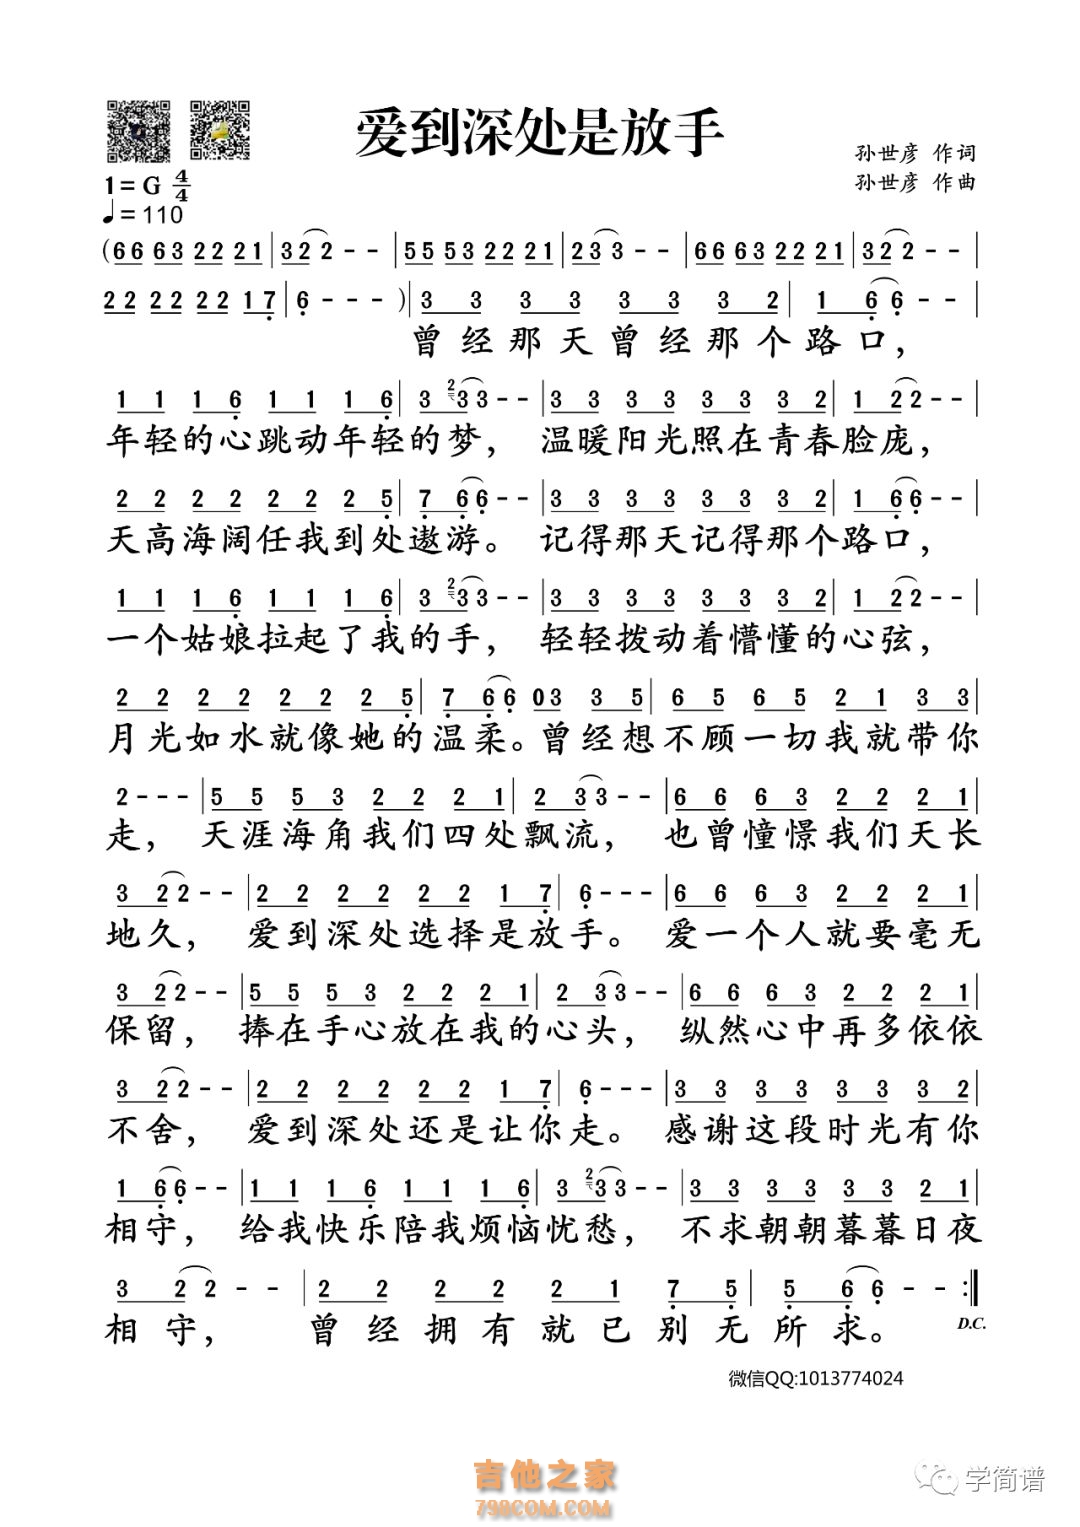 爱到深处是放手
孙世彦 作词
孙世彦 作曲
1=G 4/4
♩=110
(66 63 22 21|32 2 - -|55 53 22 21|23 3 - -|66 63 22 21|32 2 - -|
22 22 22 17|6 - - -)|3 3 3 3 3 3 3 2|1 6 6 - -|
曾经那天曾经那个路口，
1 1 1 6 1 1 1 6|3 2 3 3 - -|3 3 3 3 3 3 3 2|1 2 2 - -|
年轻的心跳动年轻的梦，温暖阳光照在青春脸庞，
2 2 2 2 2 2 2 5|7 6 6 - -|3 3 3 3 3 3 3 2|1 6 6 - -|
天高海阔任我到处遨游。记得那天记得那个路口，
1 1 1 6 1 1 1 6|3 2 3 3 - -|3 3 3 3 3 3 3 2|1 2 2 - -|
一个姑娘拉起了我的手，轻轻拨动着懵懂的心弦，
2 2 2 2 2 2 2 5|7 6 6 03 3 5|6 5 6 5 2 1 3 3|
月光如水就像她的温柔。曾经想不顾一切我就带你
2 - - -|5 5 5 3 2 2 2 1|2 3 3 - -|6 6 6 3 2 2 2 1|
走，天涯海角我们四处飘流，也曾憧憬我们天长
3 2 2 - -|2 2 2 2 2 2 1 7|6 - - -|6 6 6 3 2 2 2 1|
地久，爱到深处选择是放手。爱一个人就要毫无
3 2 2 - -|5 5 5 3 2 2 2 1|2 3 3 - -|6 6 6 3 2 2 2 1|
保留，捧在手心放在我的心头，纵然心中再多依依
3 2 2 - -|2 2 2 2 2 2 1 7|6 - - -|3 3 3 3 3 3 3 2|
不舍，爱到深处还是让你走。感谢这段时光有你
1 6 6 - -|1 1 1 6 1 1 1 6|3 2 3 3 - -|3 3 3 3 3 3 2 1|
相守，给我快乐陪我烦恼忧愁，不求朝朝暮暮日夜
3 2 2 - -|2 2 2 2 2 1 7 5|5 6 6 - - :||
相守，曾经拥有就已别无所求。
D.C.
微信QQ:1013774024
吉他之家
798COM.COM
学简谱